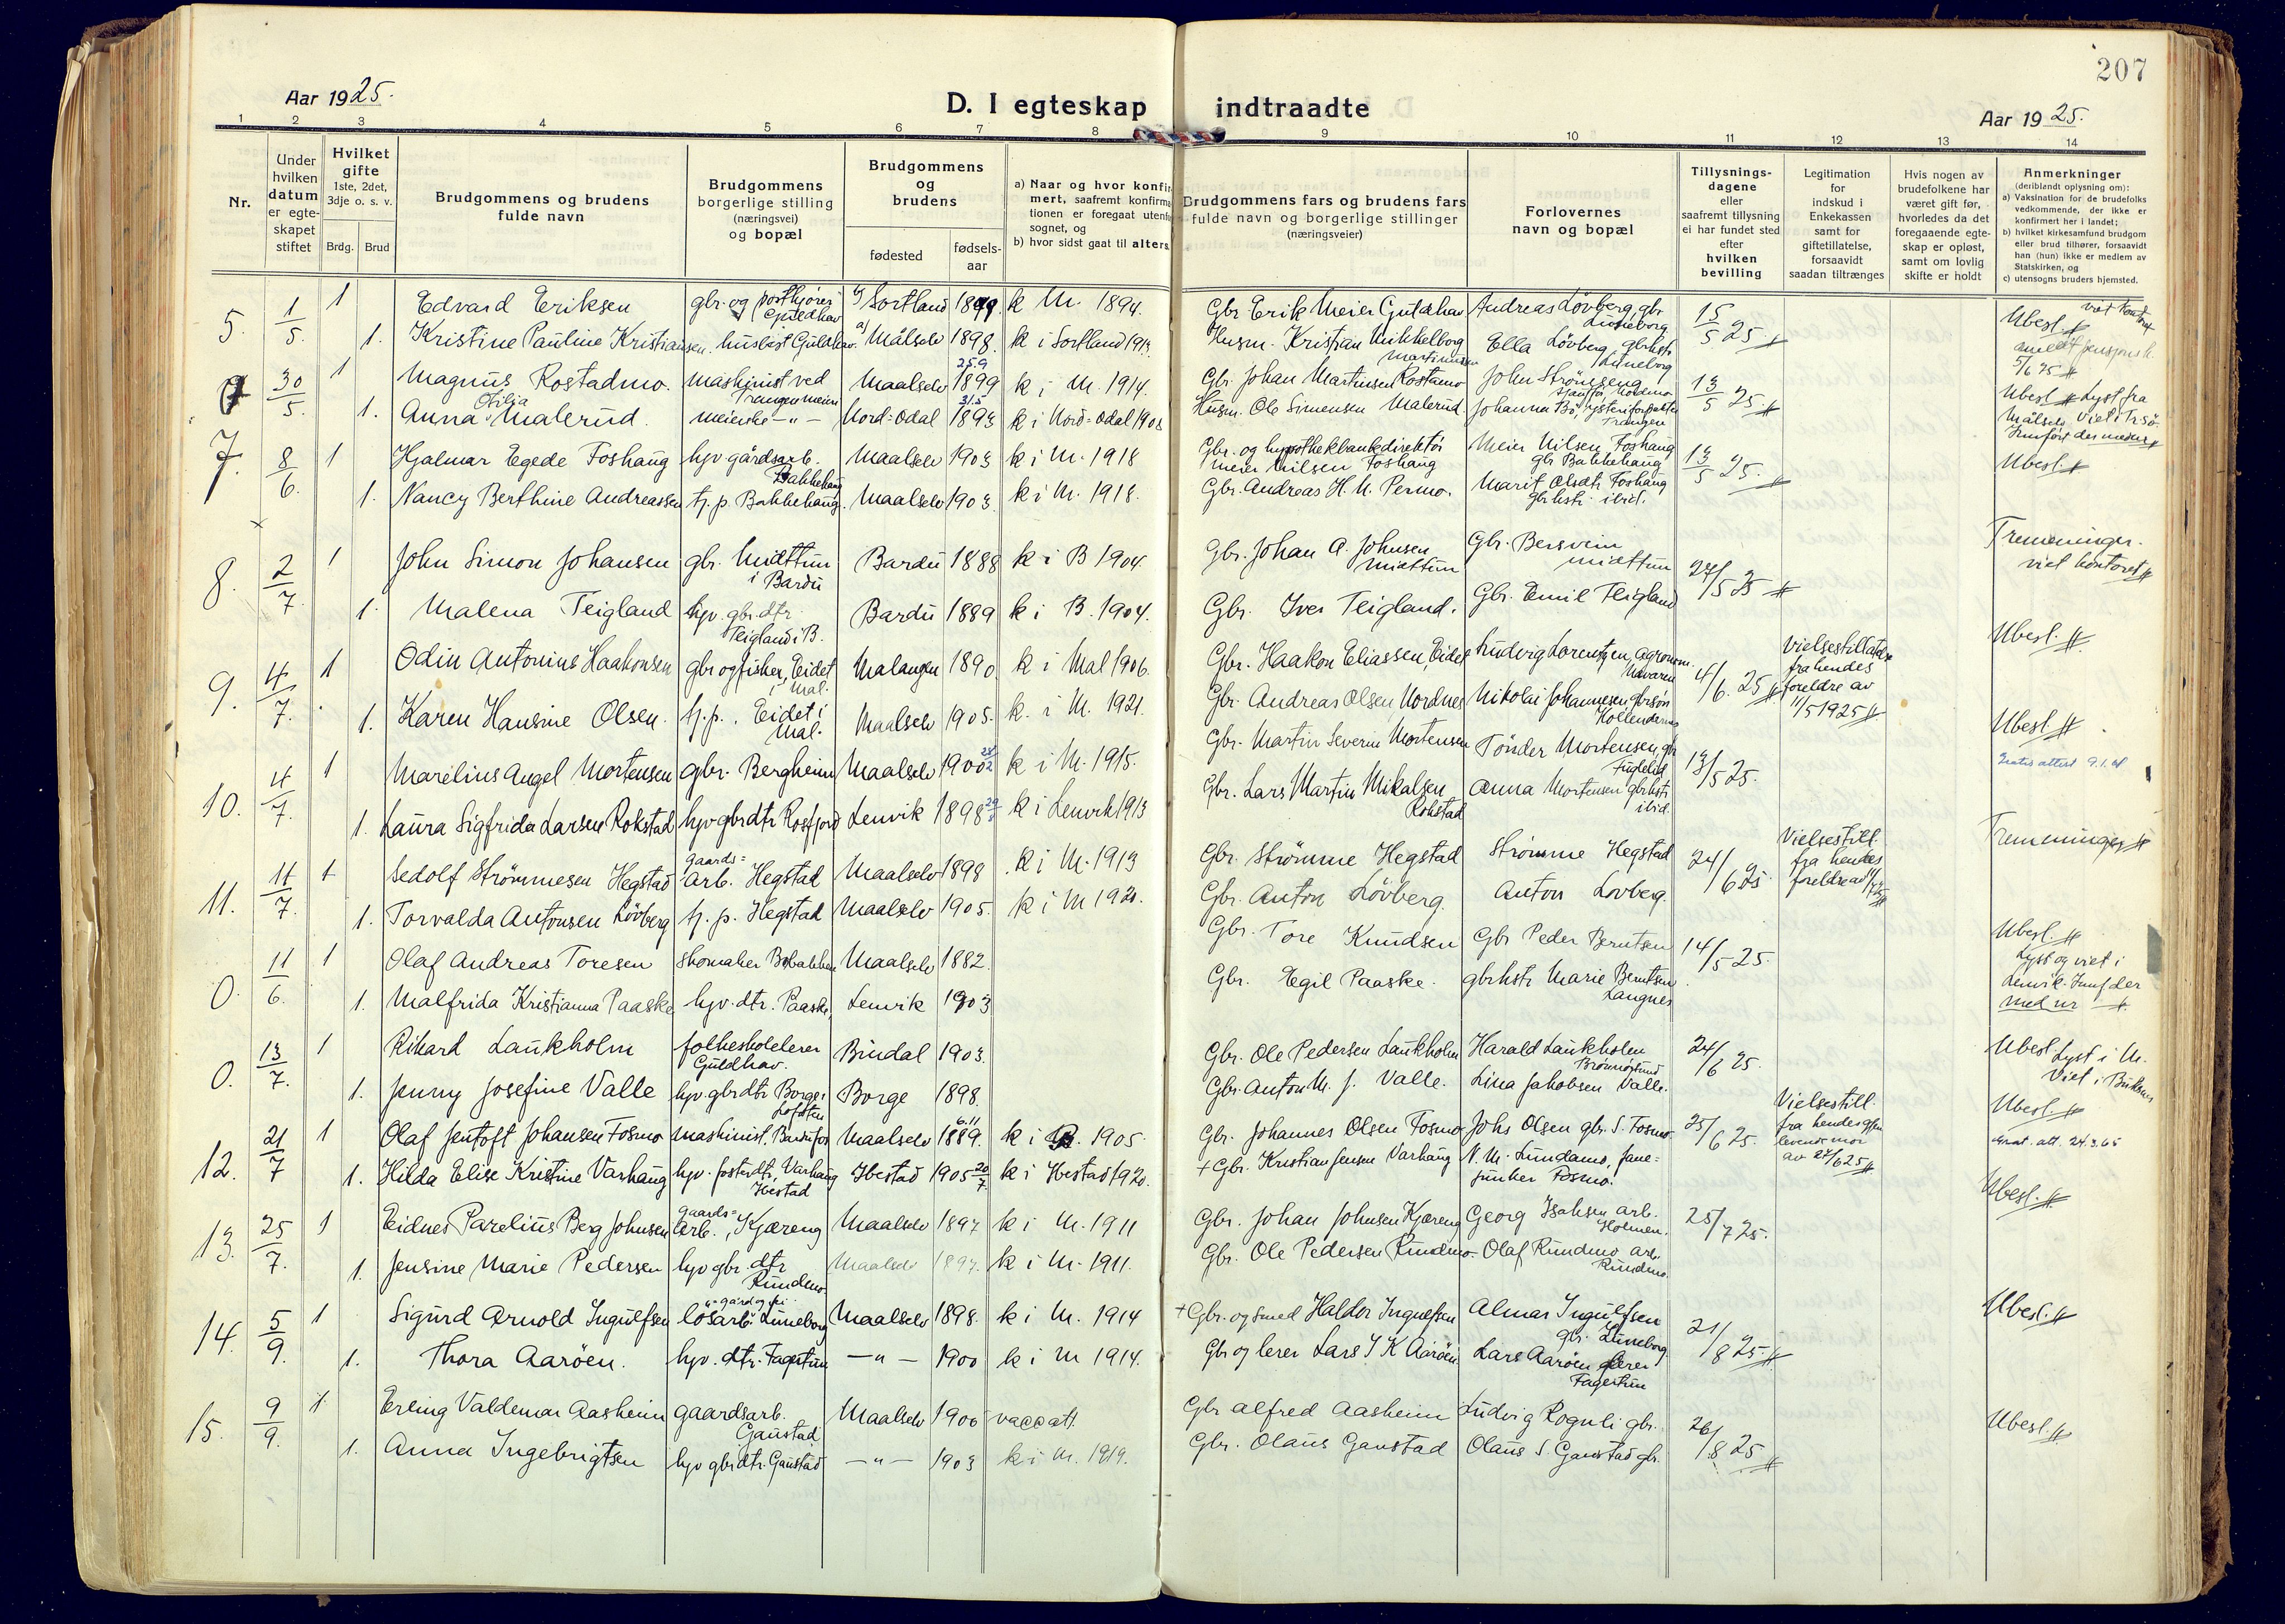 207
Aar 1925.
D. I egteskap indtraadte
Aar 1925.
1 2 3 4 5 6 7 8 9 10 11 12 13 14
Nr.
Under hvilken datum er egteskapet stiftet
Hvilket gifte 1ste, 2det, 3dje o. s. v.
Brdg. Brud
Brudgommens og brudens fulde navn
Brudgommens borgerlige stilling (næringsvei) og bopæl
Brudgommens og brudens
fødested
fødsels-aar
a) Naar og hvor konfirmert, saafremt konfirmationen er foregaat utenfor sognet, og
b) hvor sidst gaat til alters.
Brudgommens fars og brudens fars fulde navn og borgerlige stillinger (næringsveier)
Forlovernes navn og bopæl
Tillysningsdagene eller saafremt tillysning ei har fundet sted efter hvilken bevilling
Legitimation for indskud i Enkekassen samt for giftetillatelse, forsaavidt saadan tiltrænges
Hvis nogen av brudefolkene har været gift før, hvorledes da det foregaaende egteskap er opløst, samt om lovlig skifte er holdt
Anmerkninger (deriblandt oplysning om):
a) Vaksination for de brudefolks vedkommende, der ikke er konfirmert her i landet;
b) hvilket kirkesamfund brudgom eller brud tilhører, forsaavidt han (hun) ikke er medlem av Statskirken, og
c) utensogns bruders hjemsted.
5. 1/5. 1 Edvard Eriksen gbr. og postkjører Guldhav Sortland k M. 1894. Gbr. Erik Meier Guldhav Andreas Lövberg, gbr Luneborg 15/5 25. Ubesl. viet
1. Kristine Pauline Kristiansen. husløst Guldhav. Målselv 1898. k i Sortland Husm. Kristian Mikkelborg Martinusen Ella Lövberg, gbrkst Luneborg 5/6 25
30/5. 1 Magnus Rostadmo. maskinist ved Maalselv 25.9 1899 k i M. 1914. Gbr. Johan Martinsen Rostamo John Strömseng 13/5 25. Ubesl. Lyst fra
1. Anna Otilia Malerud. meierske -"- Nord-Odal 31.5 1893 k i Nord-Odal 1908 Husm. Ole Simensen Malerud. Johanna Bö, Målselv. Viet i Trsö.
7. 8/6. 1 Hjalmar Egede Foshaug hjv gårdsarb. Bakkehaug Maalselv 1903 k i M. 1918 Gbr. og hypothekbankdirektør Meier Nilsen Foshaug Meier Nilsen Foshaug gbr Bakkehaug 13/5 25. Ubesl.
1. Nancy Berthine Andreassen tj. p. Bakkehaug. Maalselv 1903. k i M. 1918. Gbr. Andreas H. N. Permo. Marit Olsdtr Foshaug gbrkst ibid.
8. 2/7. 1 John Simon Johansen gbr. Midttun i Bardu Bardu 1888 k i B 1904. Gbr. Johan A. Johnsen Midttun Gbr. Bersvein Midttun 24/5 25 Tremenninger. viet kontoret
1. Malena Teigland hjv. gbr. dtr Teigland i B. Bardu 1889 k i B. 1904. Gbr. Iver Teigland. Gbr. Emil Teigland
9. 4/7. 1 Odin Antonius Haakonsen gbr og fisker, Eidet i Mal. Malangen 1890. k i Mal 1906. Gbr. Haakon Eliassen, Eidet Ludvig Lorentzen, Agronom. 4/6. 25 Vielsestillatelse fra hendes foreldre av 11/5 1925 Ubesl.
1. Karen Hansine Olsen. tj. p. Eidet i Mal. Maalselv 1905. k. i M. 1921. Gbr. Andreas Olsen Nordnes Nikolai Johannesen, gbrsøn
10. 4/7. 1 Marelius Angel Mortensen gbr. Bergheim Maalselv 1900 k i M. 1915. Gbr. Martin Severin Mortensen Tönder Mortensen, gbr Fuglelid 13/5 25. Ubesl.
1. Laura Sigfrida Larsen Rokstad hjv gbrdtr Rossfjord Lenvik 1898 k i Lenvik 1913 Gbr. Lars Martin Mikalsen Rokstad Anna Mortensen gbrkst ibid.
11. 11/7. 1 Sedolf Strömmesen Hegstad gaards-arb. Hegstad Maalselv 1898 k i M. 1913 Gbr. Strömme Hegstad Strömme Hegstad 24/6 25 Vielsestill. fra hendes foreldre av Tremenninger
1. Torvalda Antonsen Lövberg tj. p. Hegstad Maalselv 1905. k i M 1920. Gbr. Anton Lövberg. Anton Lovberg.
0. 11/6. 1 Olaf Andreas Toresen skomaker Maalselv 1882. Gbr. Tore Knudsen Gbr Peder Berntsen 14/5 25. Ubesl. Lyst og viet i
1. Malfrida Kristianna Paaske hjv. dtr. Paaske, Lenvik 1903 Gbr. Egil Paaske. gbrkst Marie Berntsen Langnes Lenvik. Innf. der med nr
0. 13/7. 1 Rikard Laukholm folkeskolelærer Guldhav. Bindal 1903. Gbr. Ole Pedersen Laukholm Harald Laukholm Brønnøysund 24/6 25. Ubesl Lyst i M.
1. Jenny Josefine Valle hjv gbrdtr Borge i Lofoten Borge 1898. Gbr. Anton M. J. Valle. Lina Jakobsen Valle. Viet i Buksnes
12. 21/7 1 Olaf Jentoft Johansen Fosmo maskinist. Bardufoss Maalselv 6.11 1889. k i B. 1905. Gbr. Johannes Olsen Fosmo Johs Olsen gbr. S. Fosmo. 25/6 25. Vielsestill. fra hendes levende mor av 24/6 25 Ubesl. Grat. att. 24.3.65
1. Hilda Elise Kristine Varhaug hjv. fosterdtr, Varhaug Ibestad Ibestad 1905 20/7. k i Ibestad 1920. + Gbr. Kristian Jensen Varhaug N. M. Lundamo, fanejunker Fosmo.
13. 25/7. 1 Eidnes Parelius Berg Johnsen gaards-arb., Kjæreng Maalselv 1897 k i M. 1911 Gbr. Johan Johnsen Kjæreng Georg Isaksen arb. Holmen. 25/7 25. Ubesl.
1. Jensine Marie Pedersen hjv gbr. dtr Rundmo Maalselv 1897. k i M. 1911. Gbr. Ole Pedersen Rundmo. Olaf Rundmo arb. Rundmo.
14. 5/9. 1 Sigurd Arnold Ingulfsen lösarb. Luneborg Maalselv 1898. k i M. 1914 + Gbr. og Smed Haldor Ingulfsen Almar Ingulfsen gbr. Luneborg 21/8 25. Ubesl.
1. Thora Aaröen. hjv. dtr. Fagertun -"- 1900 k i M 1914. Gbr og lærer Lars I K Aaröen Lars Aaröen lærer Fagertun
15. 9/9. 1 Erling Valdemar Aasheim gaardsarb. Gaustad Maalselv 1900 vaccatt. Gbr Alfred Aasheim Ludvig Rognli gbr. 26/8 25 Ubesl.
1. Anna Ingebrigtsen hjv gbrdtr. Gaustad -"- 1903 k i M. 1919. Gbr. Olaus Gaustad Olaus S. Gaustad gbr.